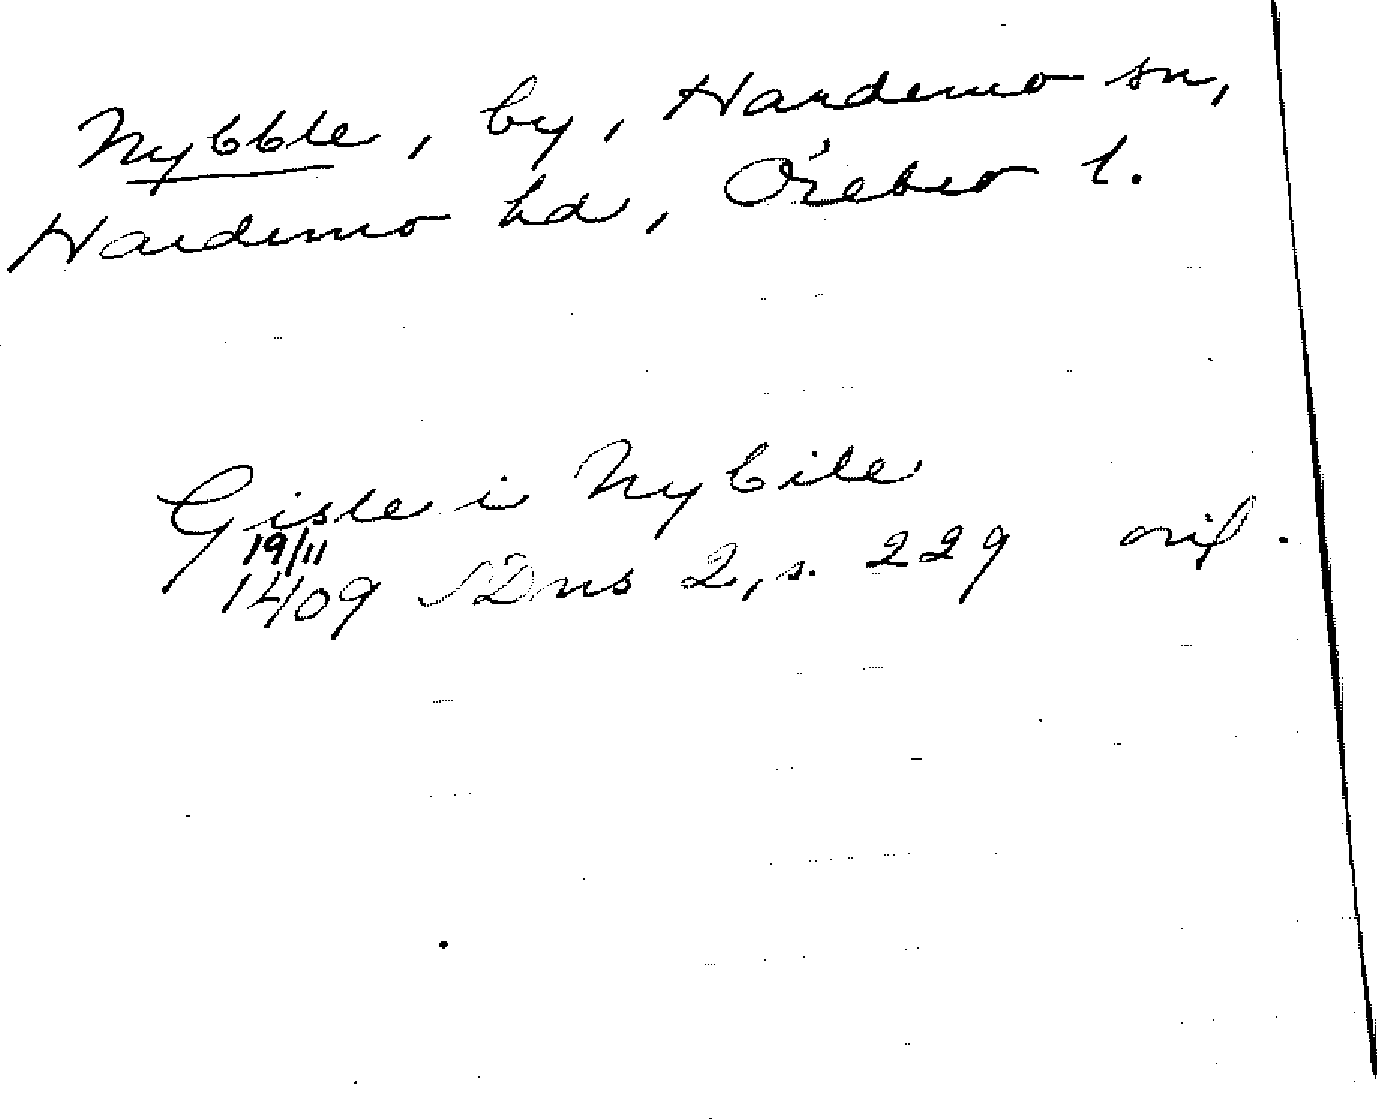 Nybble, by, Hardemo sn,
Hardemo hd, Örebro l.
Gisle i Nybile
19/11
1409 SDns 2, s. 229 orig.